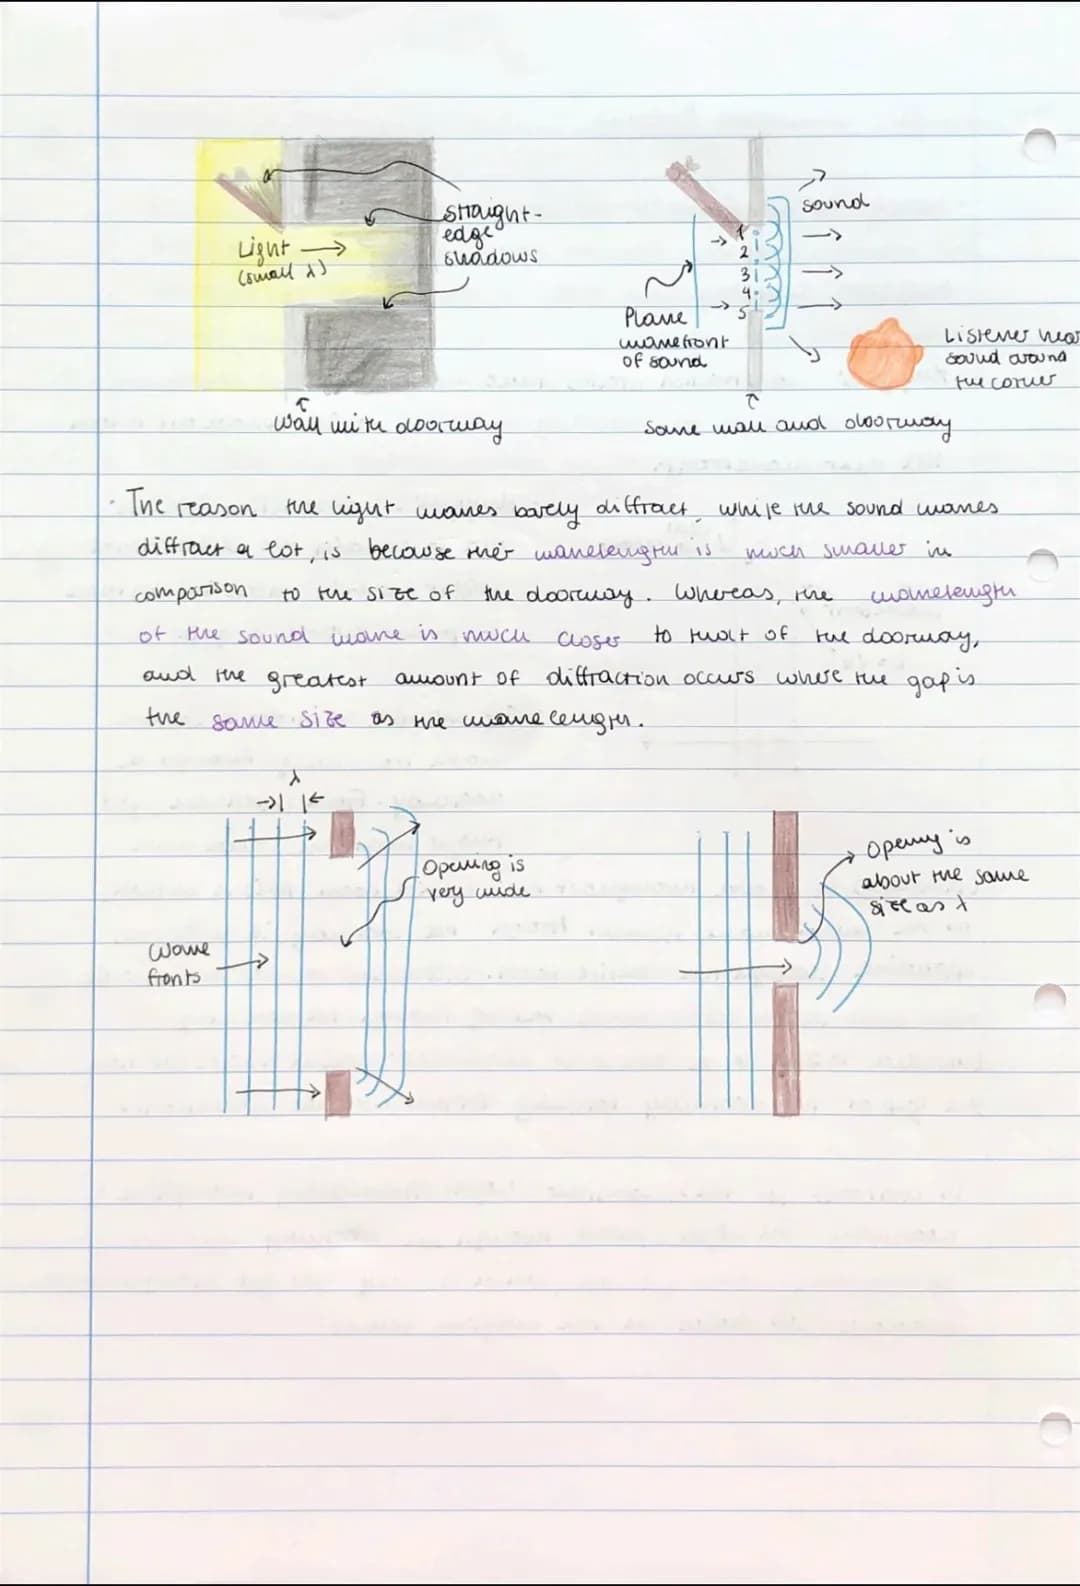 straight-
edge
shadows
Light
(small λ)
Wall with doorway
sound
1
2
3
4
5
Plane
wavefront
of sound
Listener hear
sound around
the corner
Same wall and doorway
· The reason the light waves barely diffract, while the sound waves
diffract a lot, is because their wavelength is much smaller in
comparison to the size of the doorway. Whereas, the wavelength
of the sound wave is much closer to that of the doorway,
and the greatest amount of diffraction occurs where the gap is
the same size as the wavelength.
λ
Opening is
very wide
Wave
fronts
Opening is
about the same
size as λ